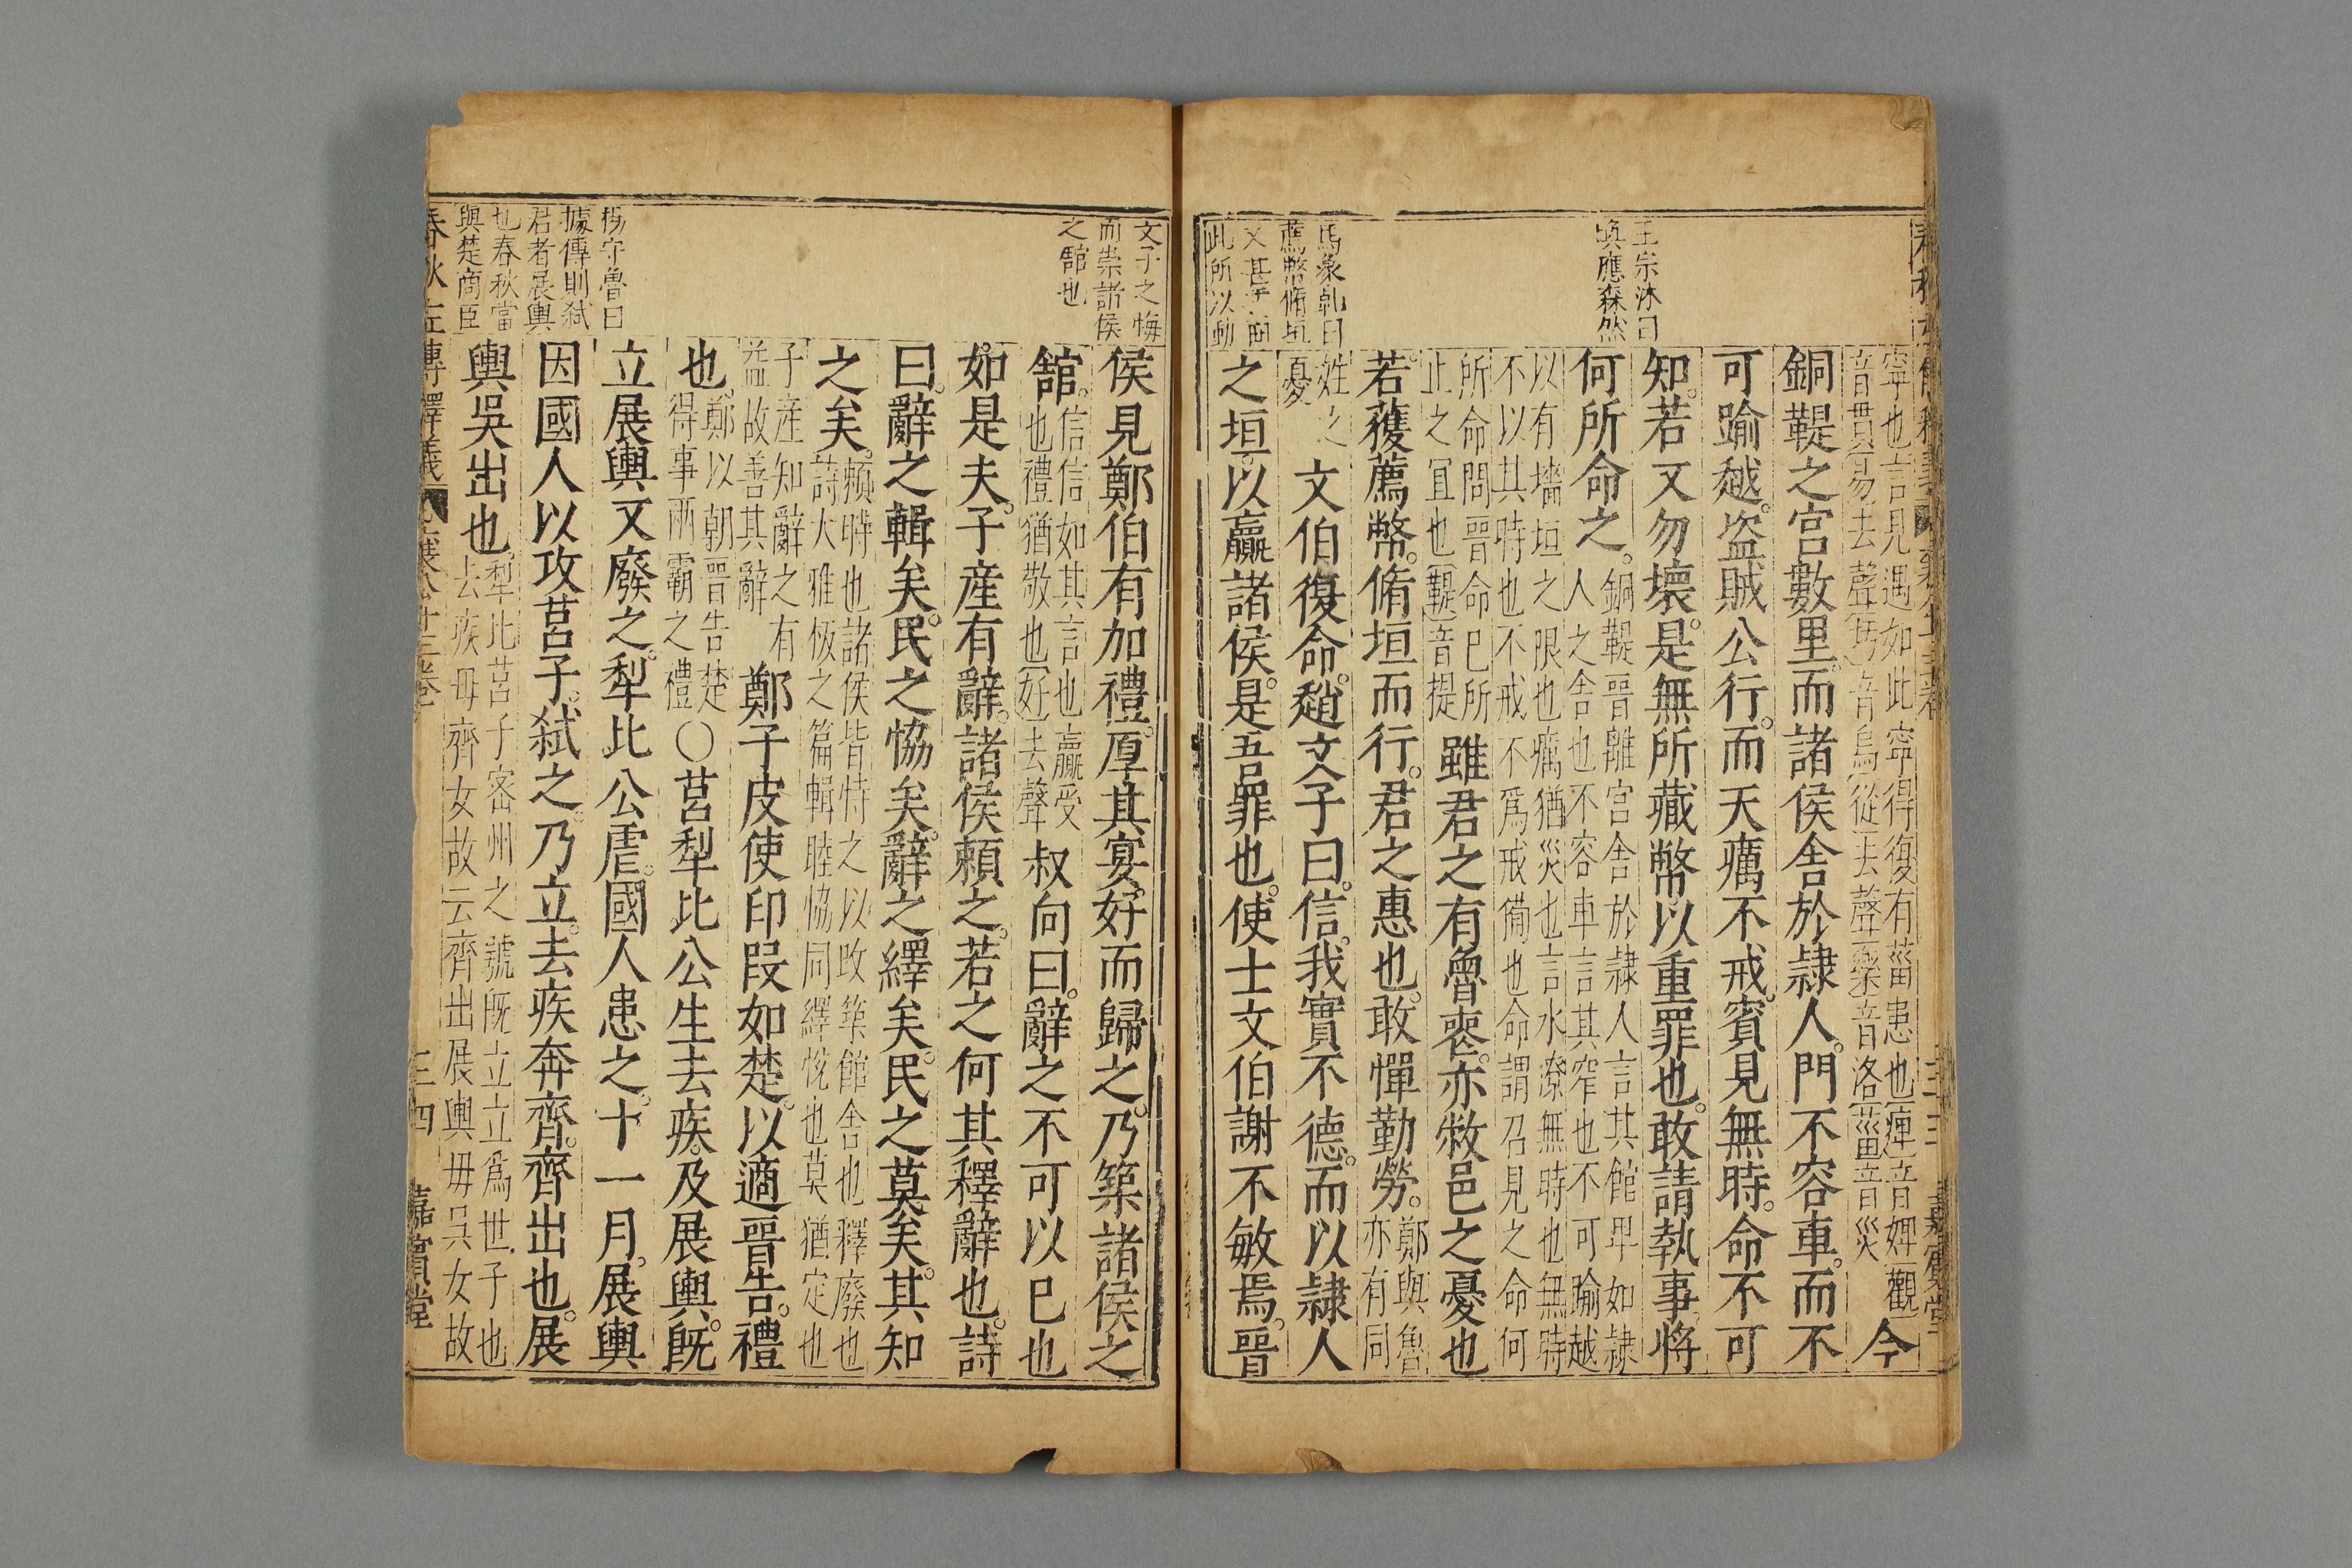 王宗沐曰
眞應森然
馬象乾曰
薦幣脩垣
此所以動
寧也言見遇如此寧得復有菑患也痺音婢觀
音貫易去聲圬音烏從去聲樂音洛菑音災
今
銅鞮之宮數里而諸侯舍於隷人門不容車而不
可踰越盜賊公行而天癘不戒賓見無時命不可
知若又勿壞是無所藏幣以重罪也敢請執事將
何所命之
銅鞮晉離宮舍於隷人言其館卑如隷
人之舍也不容車言其窄也不可踰越
以有墻垣之限也癘猶災也言水潦無時也無時
不以其時也不戒不爲戒備也命謂召見之命何
所命問晉命已所
止之冝也鞮音提
雖君之有魯䘮亦敝邑之憂也
若獲薦幣脩垣而行君之惠也敢憚勤勞
鄭與魯
亦有同
姓之
憂
文伯復命趙文子曰信我實不德而以隷人
之垣以贏諸侯是吾罪也使士文伯謝不敏焉晉
文子之悔
而崇諸侯
之舘也
楊守魯曰
據傳則弑
君者展輿
也春秋當
與楚商臣
侯見鄭伯有加禮厚其宴好而歸之乃築諸侯之
舘
信信如其言也贏受
也禮猶敬也好去聲
叔向曰辭之不可以已也
如是夫子產有辭諸侯賴之若之何其釋辭也詩
曰辭之輯矣民之恊矣辭之繹矣民之莫矣其知
之矣
賴時也諸侯皆恃之以改築館舍也釋廢也
詩大雅板之篇輯睦恊同繹悅也莫猶定也
子產知辭之有
益故善其辭
鄭子皮使印段如楚以適晉告禮
也
鄭以朝晉告楚
得事兩霸之禮
〇莒犁比公生去疾及展輿既
立展輿又廢之犁比公虐國人患之十一月展輿
因國人以攻莒子弑之乃立去疾奔齊齊出也展
輿吳出也
犁比莒子密州之號既立立爲世子也
去疾母齊女故云齊出展輿母吳女故
春秋左傳釋義
襄公十三卷
三四
嘉賓堂